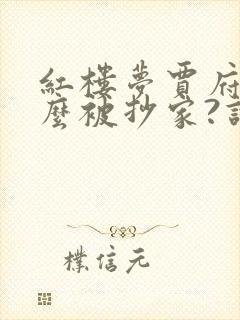 紅樓夢賈府
麼被抄家?
樸信元